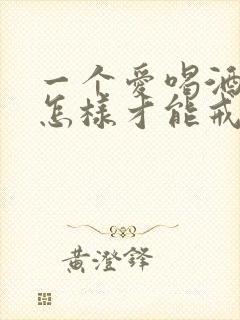 一个爱喝酒
怎样才能戒
黄澄铎